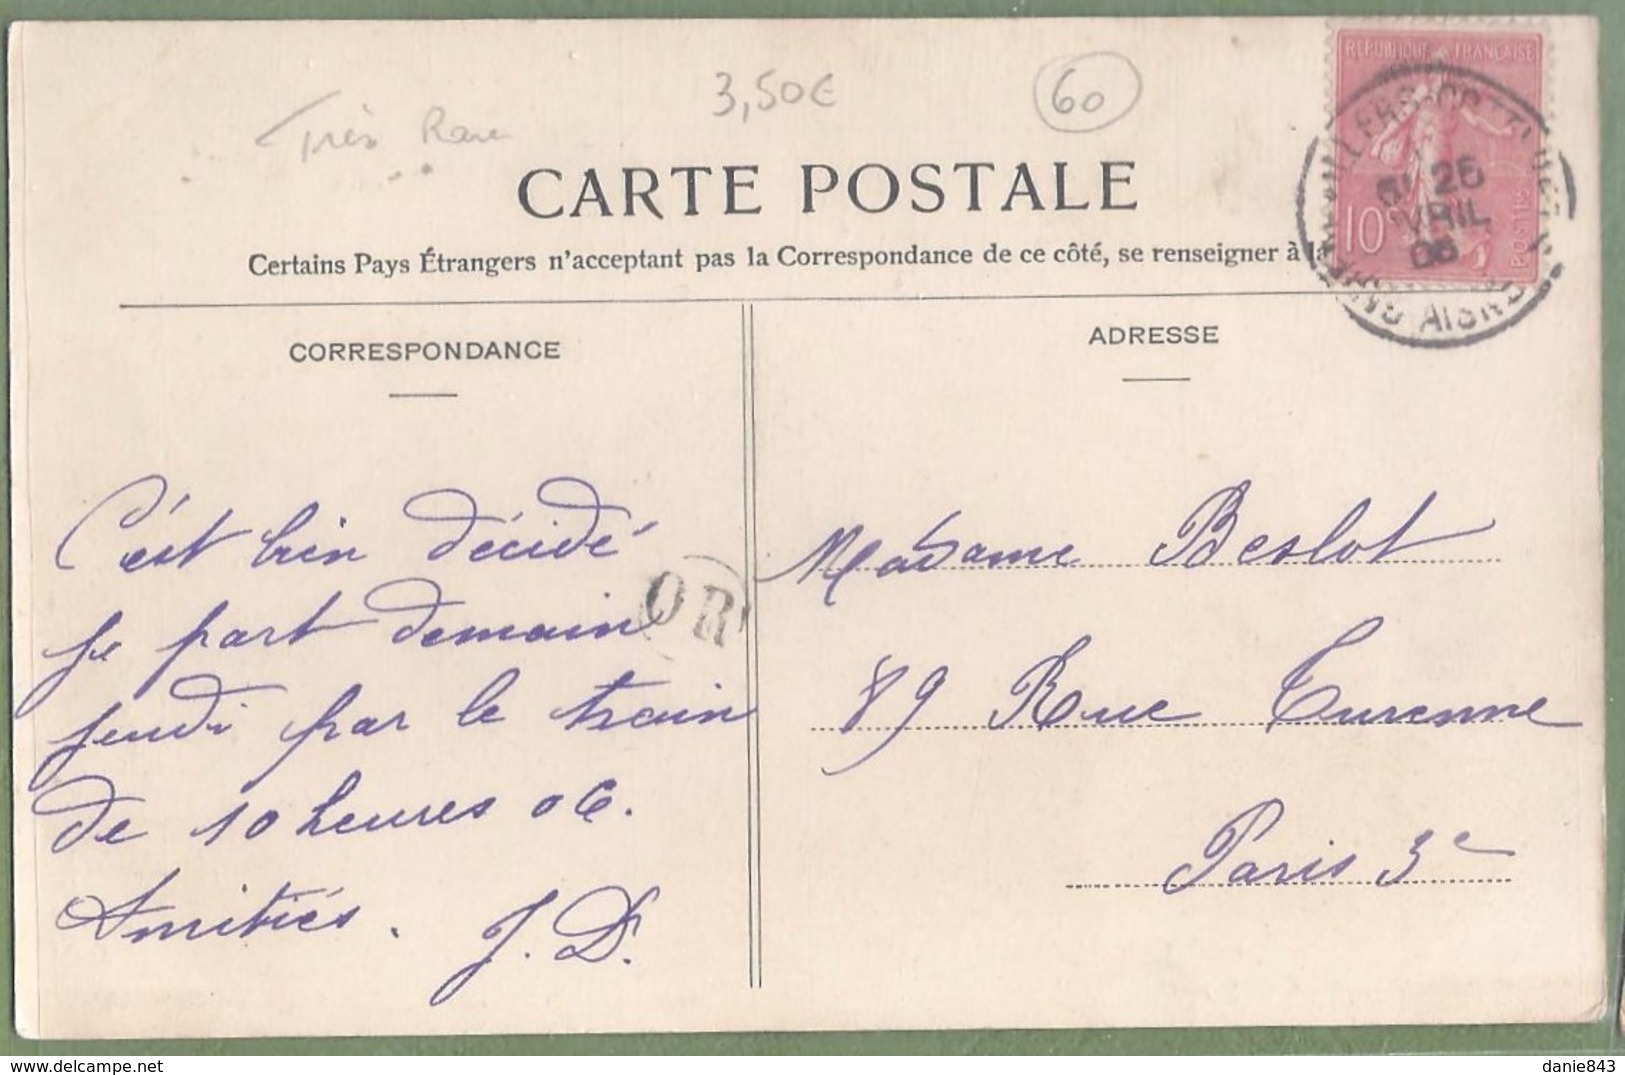 Très Rare
3,50€
60
RÉPUBLIQUE FRANÇAISE
10c
POSTES
26
AVRIL
06
AISNE
CARTE POSTALE
Certains Pays Étrangers n'acceptant pas la Correspondance de ce côté, se renseigner à la
CORRESPONDANCE
C'est bien décidé
je part demain
jeudi par le train
de 10 heures 06.
Amitiés.
J. D.
OR
ADRESSE
Madame Beslot
89 Rue Turenne
Paris 3e
danie843